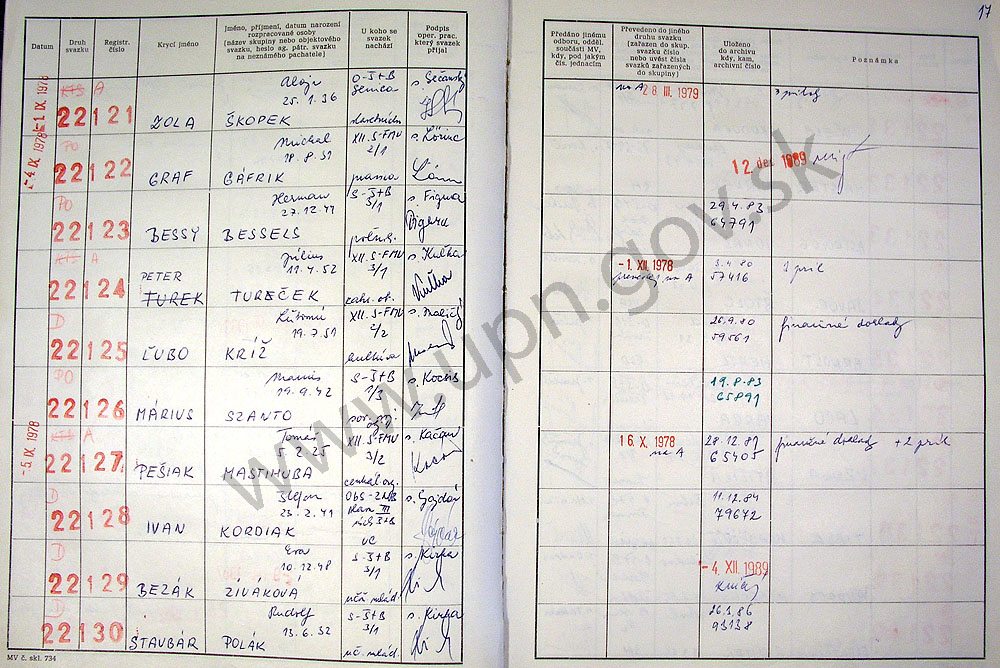 17
Datum
Druh svazku
Registr. číslo
Krycí jméno
Jméno, příjmení, datum narození rozpracované osoby (název skupiny nebo objektového svazku, heslo ag. pátr. svazku na neznámého pachatele)
U koho se svazek nachází
Podpis oper. prac. který svazek přijal
Předáno jinému odboru, odděl. součásti MV, kdy, pod jakým čís. jednacím
Převedeno do jiného druhu svazku (zařazen do skup. svazku číslo nebo uvést čísla svazků zařazených do skupiny)
Uloženo do archivu kdy, kam, archivní číslo
Poznámka
-1. IX. 1978
KTS A
22121
ZOLA
Alojz
25.1.36
ŠKOPEK
Š-ŠtB
Senica
na A 28. III. 1979
-4. IX. 1978
PO
22122
GRAF
Michal
GÁFRIK
XII. S-FMV
2/1
12. dec. 1989
PO
22123
BESSY
Herman
27.12.49
BESSELS
S-ŠtB
3/1
s. Figura
29.4.83
64791
KTS A
22124
PETER
TUREK
Július
11.4.52
TUREČEK
XII. S-FMV
3/1
s. Kuťka
-1. XII. 1978
na A
3.4.80
57416
3 príl
D
22125
ĽUBO
Ľubomír
19.7.51
KRÍŽ
XII. S-FMV
2/2
kultúra
26.9.80
59561
finančné doklady
PO
22126
MÁRIUS
19.9.42
SZANTO
S-ŠtB
1/3
19.8.83
65891
-5. IX. 1978
KTS A
22127
PEŠIAK
Tomáš
5.2.25
MASTIHUBA
XII. S-FMV
3/2
16. X. 1978
na A
28.12.81
65405
finančné doklady + 2 príl
D
22128
IVAN
Štefan
23.2.41
KORDIAK
s. Gajdoš
11.12.84
79672
D
22129
BEZÁK
Eva
10.12.48
ŽIVÁKOVÁ
S-ŠtB
3/1
s. Kirpa
-4. XII. 1989
D
22130
ŠTAUBÁR
Rudolf
13.6.52
POLÁK
S-ŠtB
3/1
uč. mlád.
s. Kirpa
26.3.86
93138
MV č. skl. 734
www.upn.gov.sk